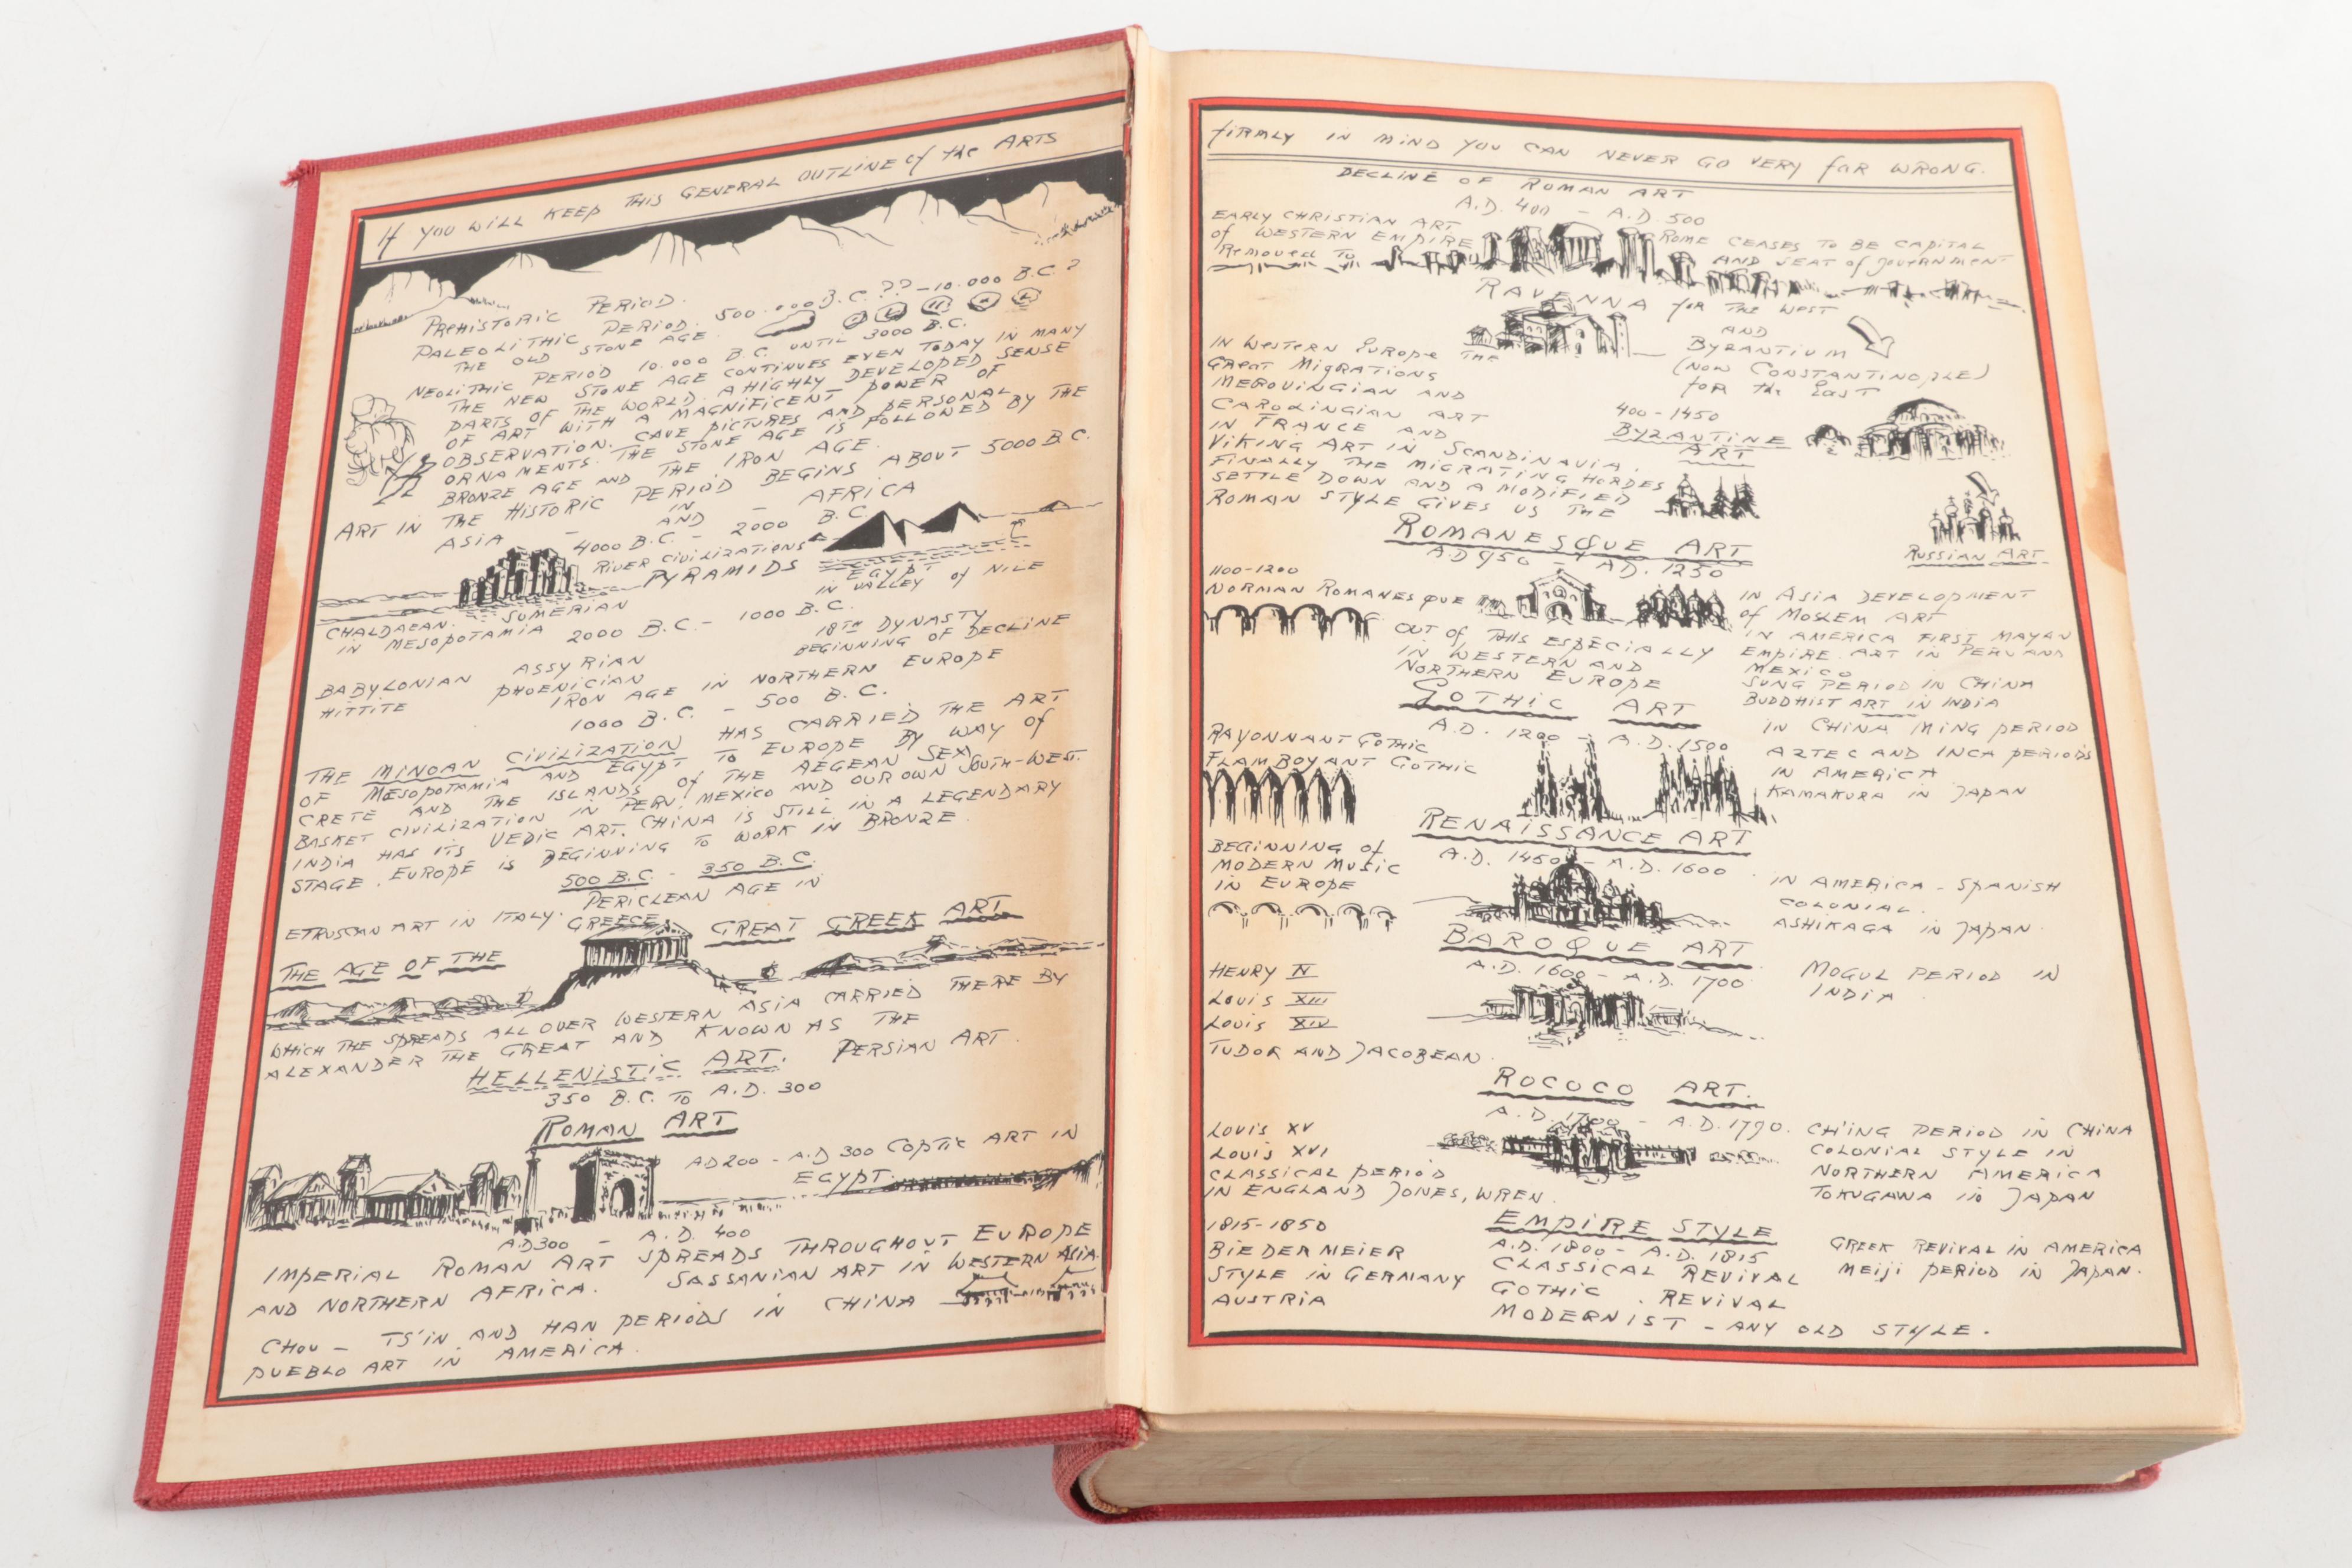 If YOU WILL KEEP THIS GENERAL OUTLINE of the ARTS
PREHISTORIC PERIOD.
PALEOLITHIC PERIOD. 500.000 B.C.?? - 10.000 B.C?
THE OLD STONE AGE.
NEOLITHIC PERIOD 10.000 B.C. UNTIL 3000 B.C.
THE NEW STONE AGE CONTINUES EVEN TODAY IN MANY
PARTS OF THE WORLD. A HIGHLY DEVELOPED SENSE
OF ART WITH A MAGNIFICENT POWER OF
OBSERVATION. CAVE PICTURES AND PERSONAL
ORNAMENTS. THE STONE AGE IS FOLLOWED BY THE
BRONZE AGE AND THE IRON AGE.
ART IN THE HISTORIC PERIOD BEGINS ABOUT 5000 B.C.
IN
ASIA - AND - AFRICA
4000 B.C. - 2000 B.C.
RIVER CIVILIZATIONS
PYRAMIDS
EGYPT
IN VALLEY of NILE
CHALDAEAN. SUMERIAN
IN MESOPOTAMIA
2000 B.C. - 1000 B.C.
18TH DYNASTY
BEGINNING OF DECLINE
BABYLONIAN ASSYRIAN
HITTITE PHOENICIAN
IRON AGE IN NORTHERN EUROPE
1000 B.C. - 500 B.C.
THE MINOAN CIVILIZATION HAS CARRIED THE ART
OF MESOPOTAMIA AND EGYPT TO EUROPE BY WAY OF
CRETE AND THE ISLANDS of THE AEGEAN SEA.
BASKET CIVILIZATION IN PERU, MEXICO AND OUR OWN SOUTH-WEST.
INDIA HAS ITS VEDIC ART. CHINA IS STILL IN A LEGENDARY
STAGE. EUROPE IS BEGINNING TO WORK IN BRONZE.
500 B.C. - 350 B.C.
PERICLEAN AGE IN
ETRUSCAN ART IN ITALY. GREECE.
THE AGE OF THE GREAT GREEK ART
WHICH THE SPREADS ALL OVER WESTERN ASIA CARRIED THERE BY
ALEXANDER THE GREAT AND KNOWN AS THE
HELLENISTIC ART. PERSIAN ART.
350 B.C. TO A.D. 300
ROMAN ART
AD 200 - A.D 300 COPTIC ART IN
EGYPT.
A.D 300 - A.D. 400
IMPERIAL ROMAN ART SPREADS THROUGHOUT EUROPE
AND NORTHERN AFRICA. SASSANIAN ART IN WESTERN ASIA.
CHOU - TS'IN AND HAN PERIODS IN CHINA
PUEBLO ART IN AMERICA.
fIRMLY IN MIND YOU CAN NEVER GO VERY fAR WRONG.
DECLINE OF ROMAN ART
A.D. 400 - A.D. 500
EARLY CHRISTIAN ART
of WESTERN EMPIRE
Removed To
ROME CEASES TO BE CAPITAL
AND SEAT of government
RAVENNA for THE WEST
AND
BYZANTIUM
(NOW CONSTANTINOPLE)
for the East
IN Western Europe THE
Great Migrations
MEROVINGIAN AND
CAROLINGIAN ART
IN FRANCE AND
VIKING ART IN SCANDINAVIA.
FINALLY THE MIGRATING HORDES
SETTLE DOWN AND A MODIFIED
ROMAN STYLE GIVES US THE
400 - 1450
BYZANTINE
ART
RUSSIAN ART
ROMANESQUE ART
AD 950 - AD. 1250
1100-1200
NORMAN ROMANESQUE
OUT of THIS ESPECIALLY
IN WESTERN AND
NORTHERN EUROPE
IN ASIA DEVELOPMENT
of MOSLEM ART
IN AMERICA FIRST MAYAN
EMPIRE. ART IN PERU AND
MEXICO
SUNG PERIOD IN CHINA
BUDDHIST ART IN INDIA
GOTHIC ART
A.D. 1200 - A.D. 1500
RAYONNANT GOTHIC
FLAMBOYANT GOTHIC
IN CHINA MING PERIOD
AZTEC AND INCA PERIODS
IN AMERICA
KAMAKURA IN JAPAN
RENAISSANCE ART
A.D. 1450 - A.D. 1600
BEGINNING of
MODERN MUSIC
IN EUROPE
IN AMERICA - SPANISH
COLONIAL.
ASHIKAGA IN JAPAN.
BAROQUE ART
A.D. 1600 - A.D. 1700
HENRY IV
LOUIS XIII
LOUIS XIV
TUDOR AND JACOBEAN.
MOGUL PERIOD IN
INDIA.
ROCOCO ART.
A.D. 1700 - A.D. 1790.
LOUIS XV
LOUIS XVI
CLASSICAL PERIOD
IN ENGLAND JONES, WREN.
CH'ING PERIOD IN CHINA
COLONIAL STYLE IN
NORTHERN AMERICA
TOKUGAWA IN JAPAN
1815-1850
BIEDERMEIER
STYLE IN GERMANY
AUSTRIA
EMPIRE STYLE
A.D. 1800 - A.D. 1815
CLASSICAL REVIVAL
GOTHIC . REVIVAL
MODERNIST - ANY OLD STYLE.
GREEK REVIVAL IN AMERICA
MEIJI PERIOD IN JAPAN.